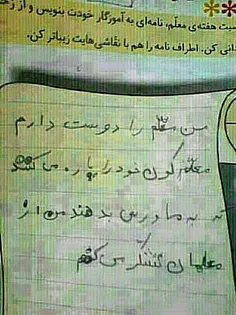 سبت هفته‌ی معلّم، نامه‌ای به آموزگار خودت بنویس و از زح
دانی کن. اطراف نامه را هم با نقّاشی‌هایت زیباتر کن.
من معلّم را دوست دارم
معلّم کون خود را پاره می کند
که به ما درس بدهند من از
معلمان تشکّر می کنم